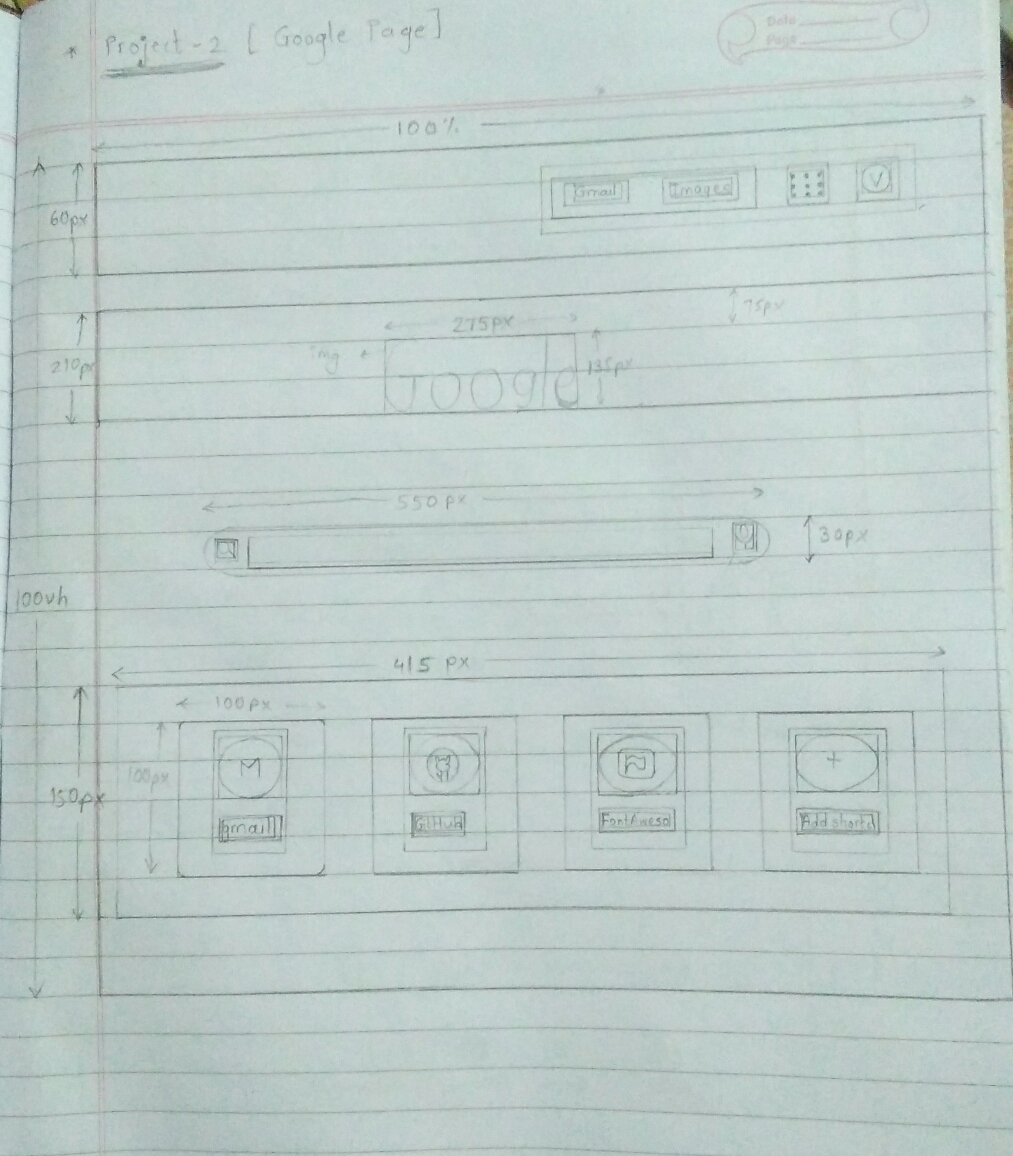 * Project-2 [ Google Page ]
Date
Page
100%
60px
Gmail Images V
75px
210px
275px
img
135px
Google
550px
30px
100vh
415 px
100px
100px
150px
M + 
gmail GitHub FontAweso Add shortc